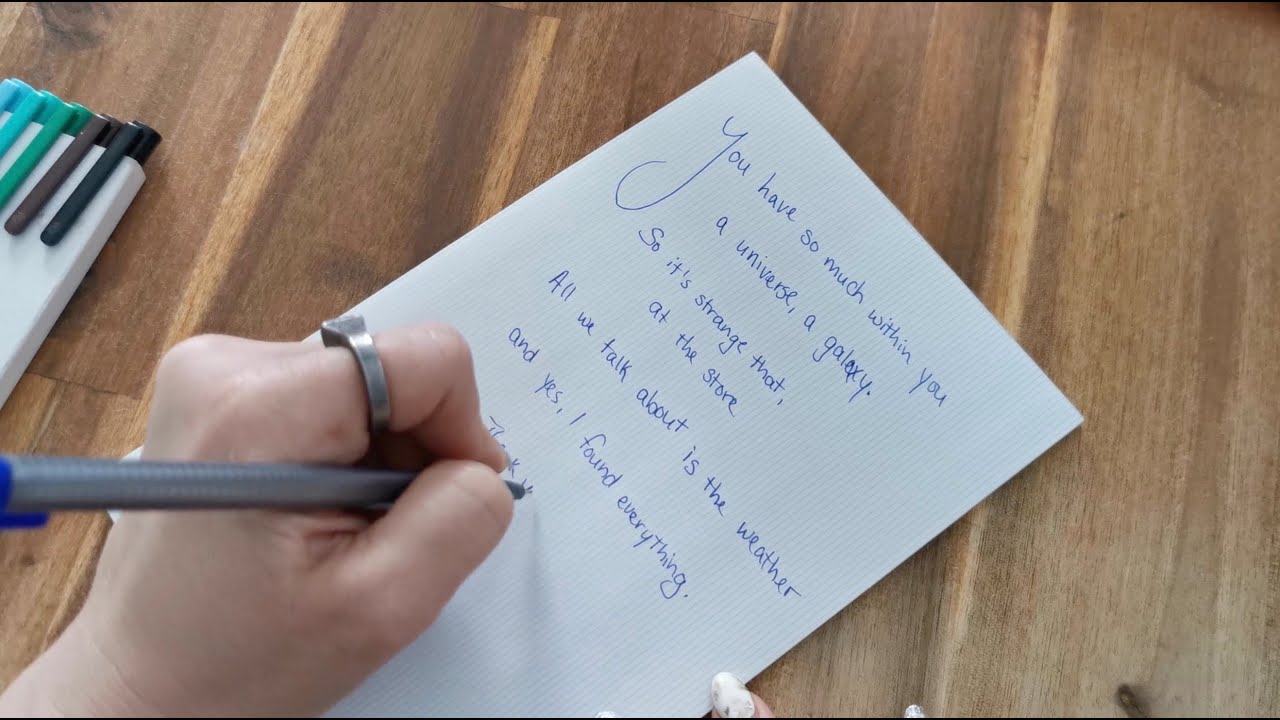 You have so much within you
a universe, a galaxy.
So it's strange that,
at the store
All we talk about is the weather
and yes, I found everything.